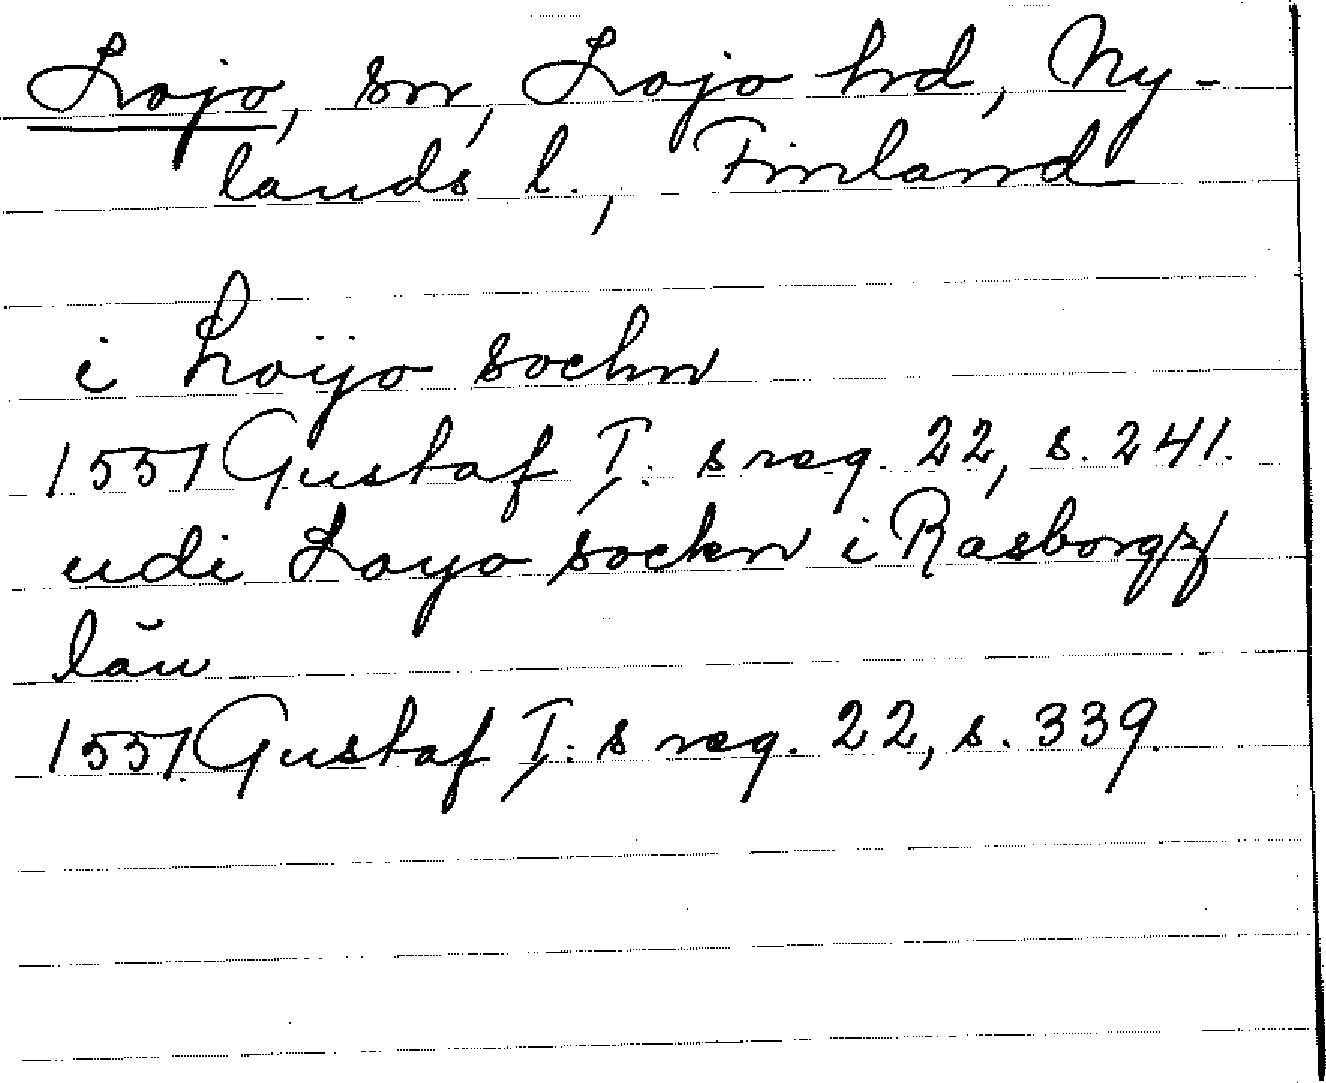 Lojo, sn, Lojo hrd, Ny-
lands l., Finland
i Loijo sochn
1557 Gustaf I:s reg. 22, s. 241.
udi Loyo sockn i Rasborgz
län
1557. Gustaf I:s reg. 22, s. 339.